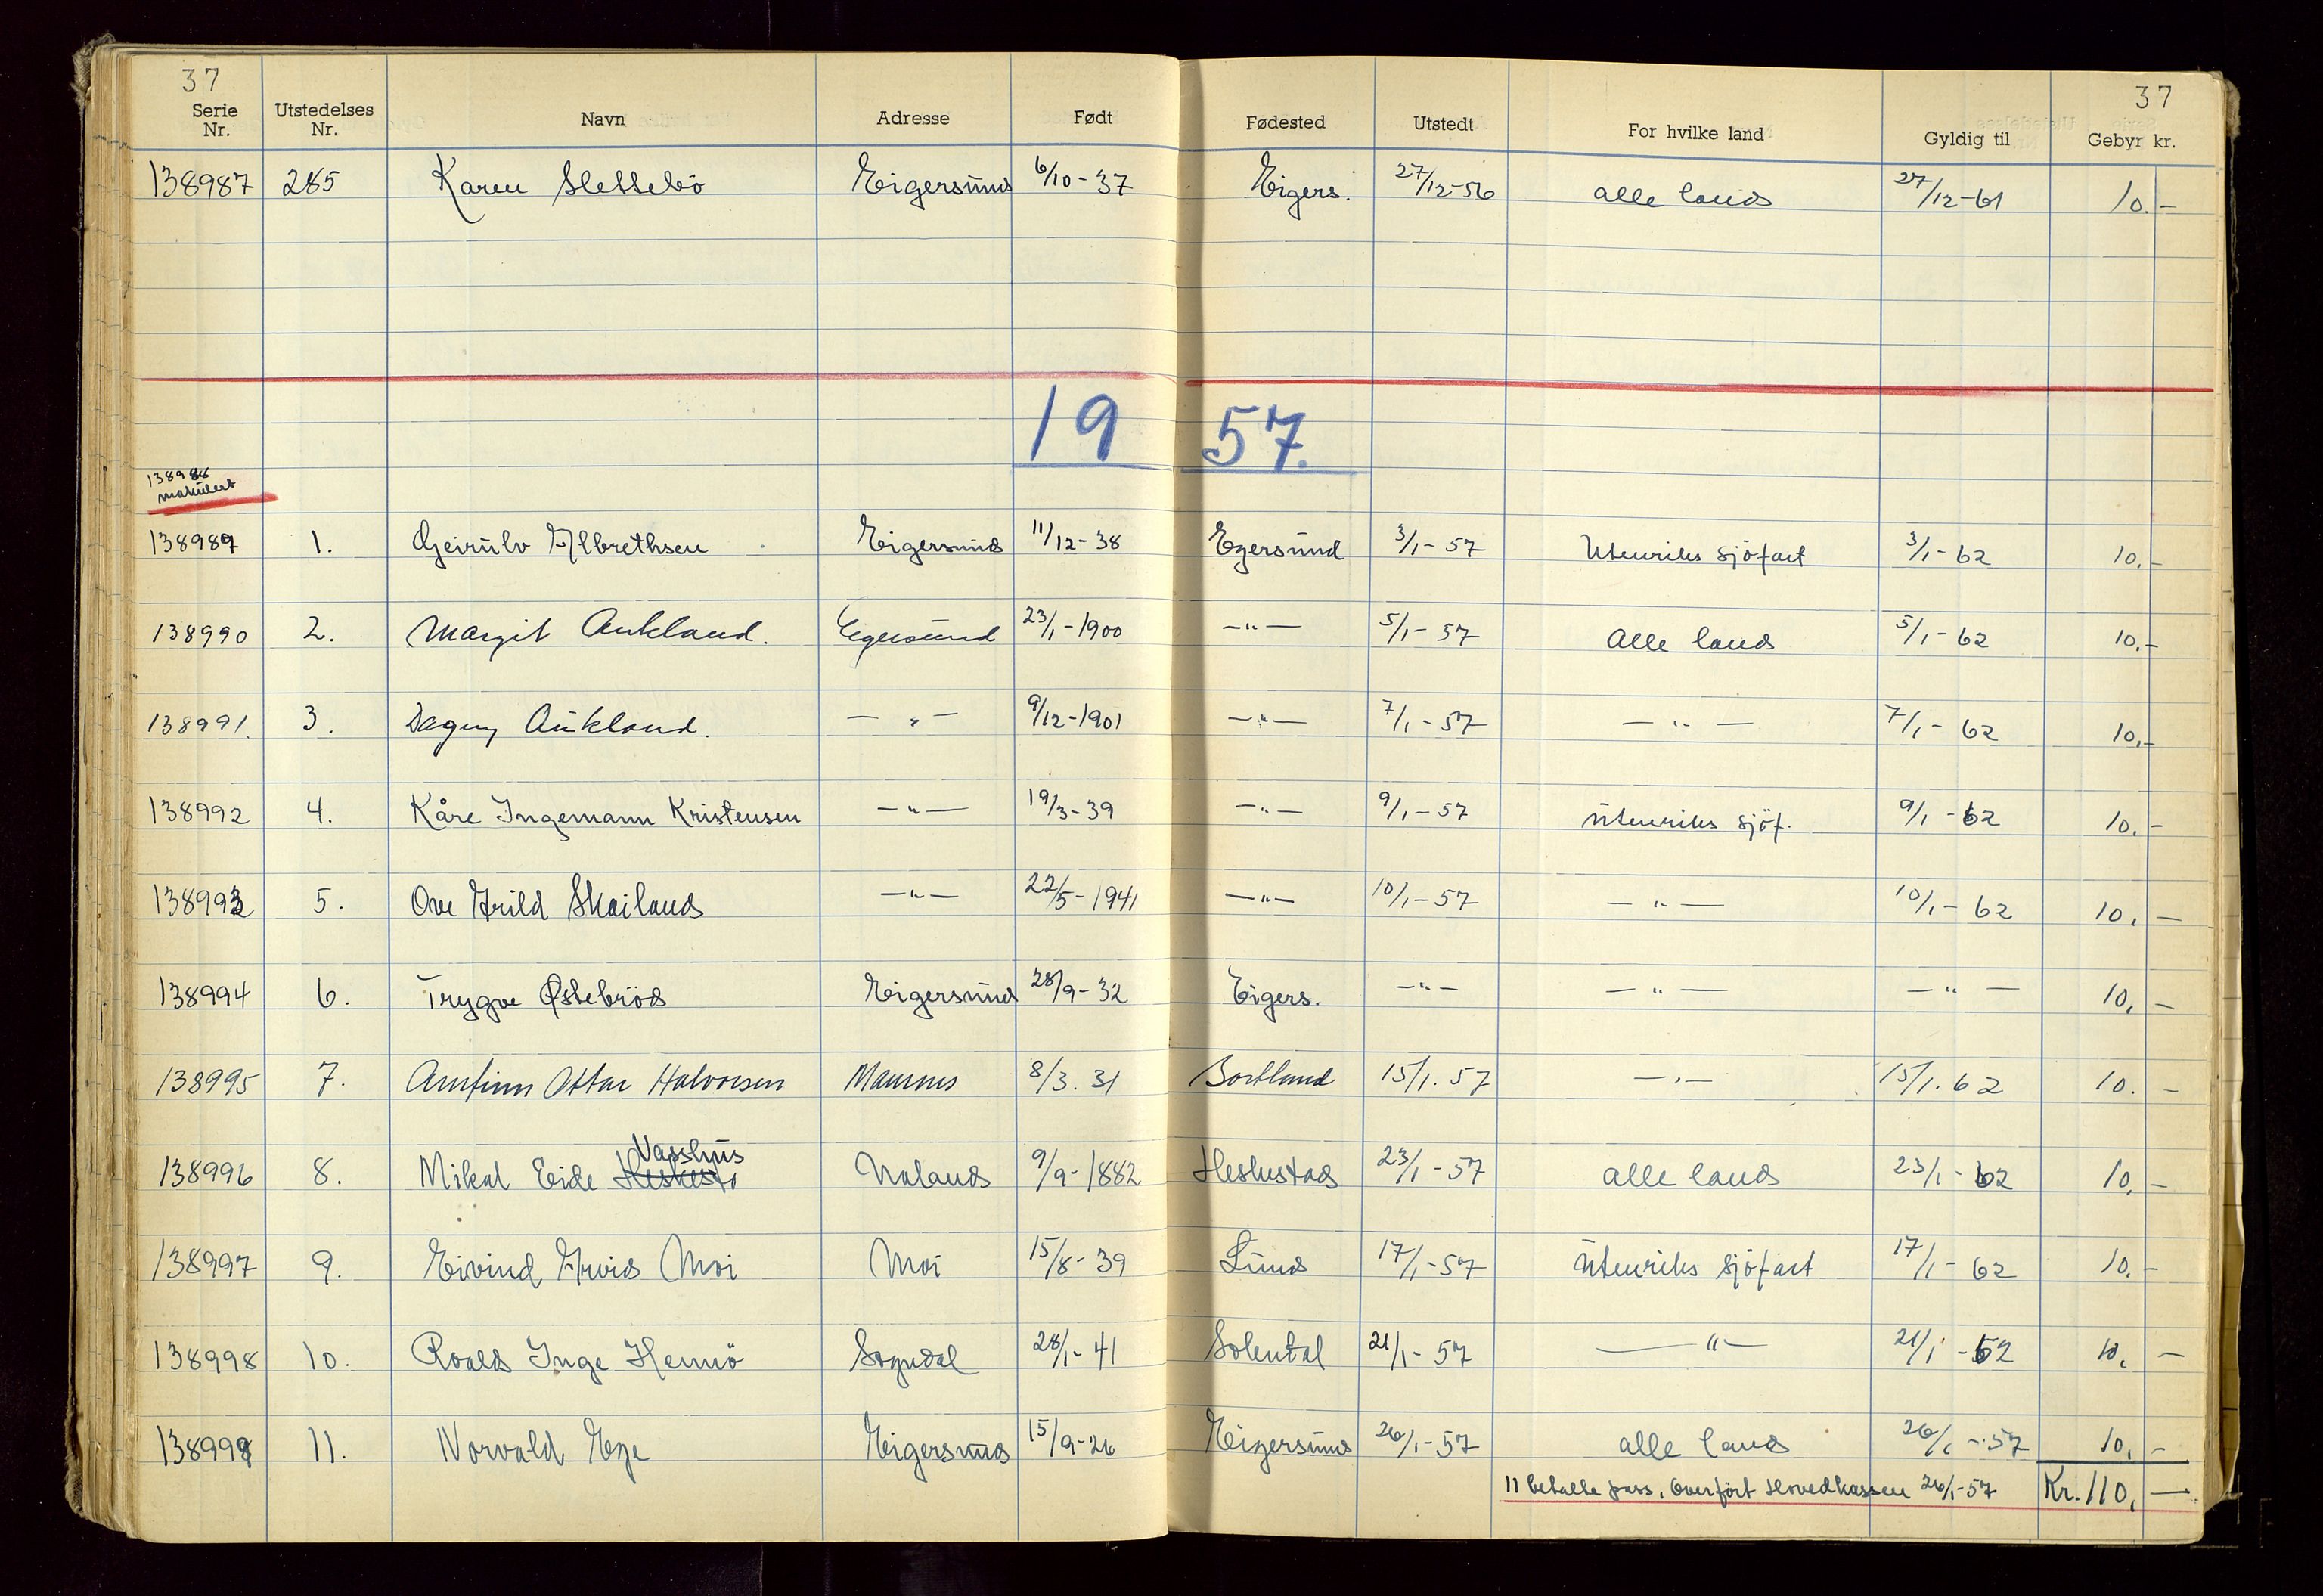 37 37
Serie Nr. Utstedelses Nr. Navn Adresse Født Fødested Utstedt For hvilke land Gyldig til Gebyr kr.
138987 285 Karen Slettebö Eigersund 6/10-37 Eigers. 27/12-56 alle land 27/12-61 10.-
19 57.
138988
makulert
138989 1. Geirulv Albrethsen Eigersund 11/12-38 Egersund 3/1-57 Utenriks sjöfart 3/1-62 10.-
138990 2. Margit Aukland. Egersund 23/1-1900 -"- 5/1-57 alle land 5/1-62 10.-
138991. 3. Dagny Aukland. -"- 9/12-1901 -"- 7/1-57 -"- 7/1-62 10.-
138992 4. Kåre Ingemann Kristensen -"- 19/3-39 -"- 9/1-57 utenriks sjöf. 9/1-62 10.-
138993 5. Ove Arild Skailand -"- 22/5-1941 -"- 10/1-57 -"- 10/1-62 10.-
138994 6. Trygve Østebröd Eigersund 28/9-32 Eigers. -"- -"- -"- 10.-
138995 7. Arnfinn Ottar Halvorsen 8/3.31 Sortland 15/1.57 -"- 15/1.62 10.-
Vasshus
138996 8. Mikal Eide Heskestad Ualand 9/9-1882 Heskestad 23/1-57 alle land 23/1-62 10.-
138997 9. Eivind Arvid Moi Moi 15/8-39 Lund 17/1-57 utenriks sjöfart 17/1-62 10.-
138998 10. Roald Inge Hennö Sogndal 28/1-41 21/1-57 -"- 21/1-62 10.-
138999 11. Norvald Ege Eigersund 15/9-26 Eigersund 26/1-57 alle land 26/1-57 10.-
11 betalte pass. Overfört Hovedkassen 26/1-57 Kr. 110,-